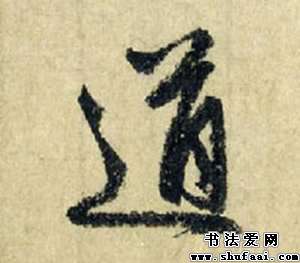 道
书法爱网
www.shufaai.com